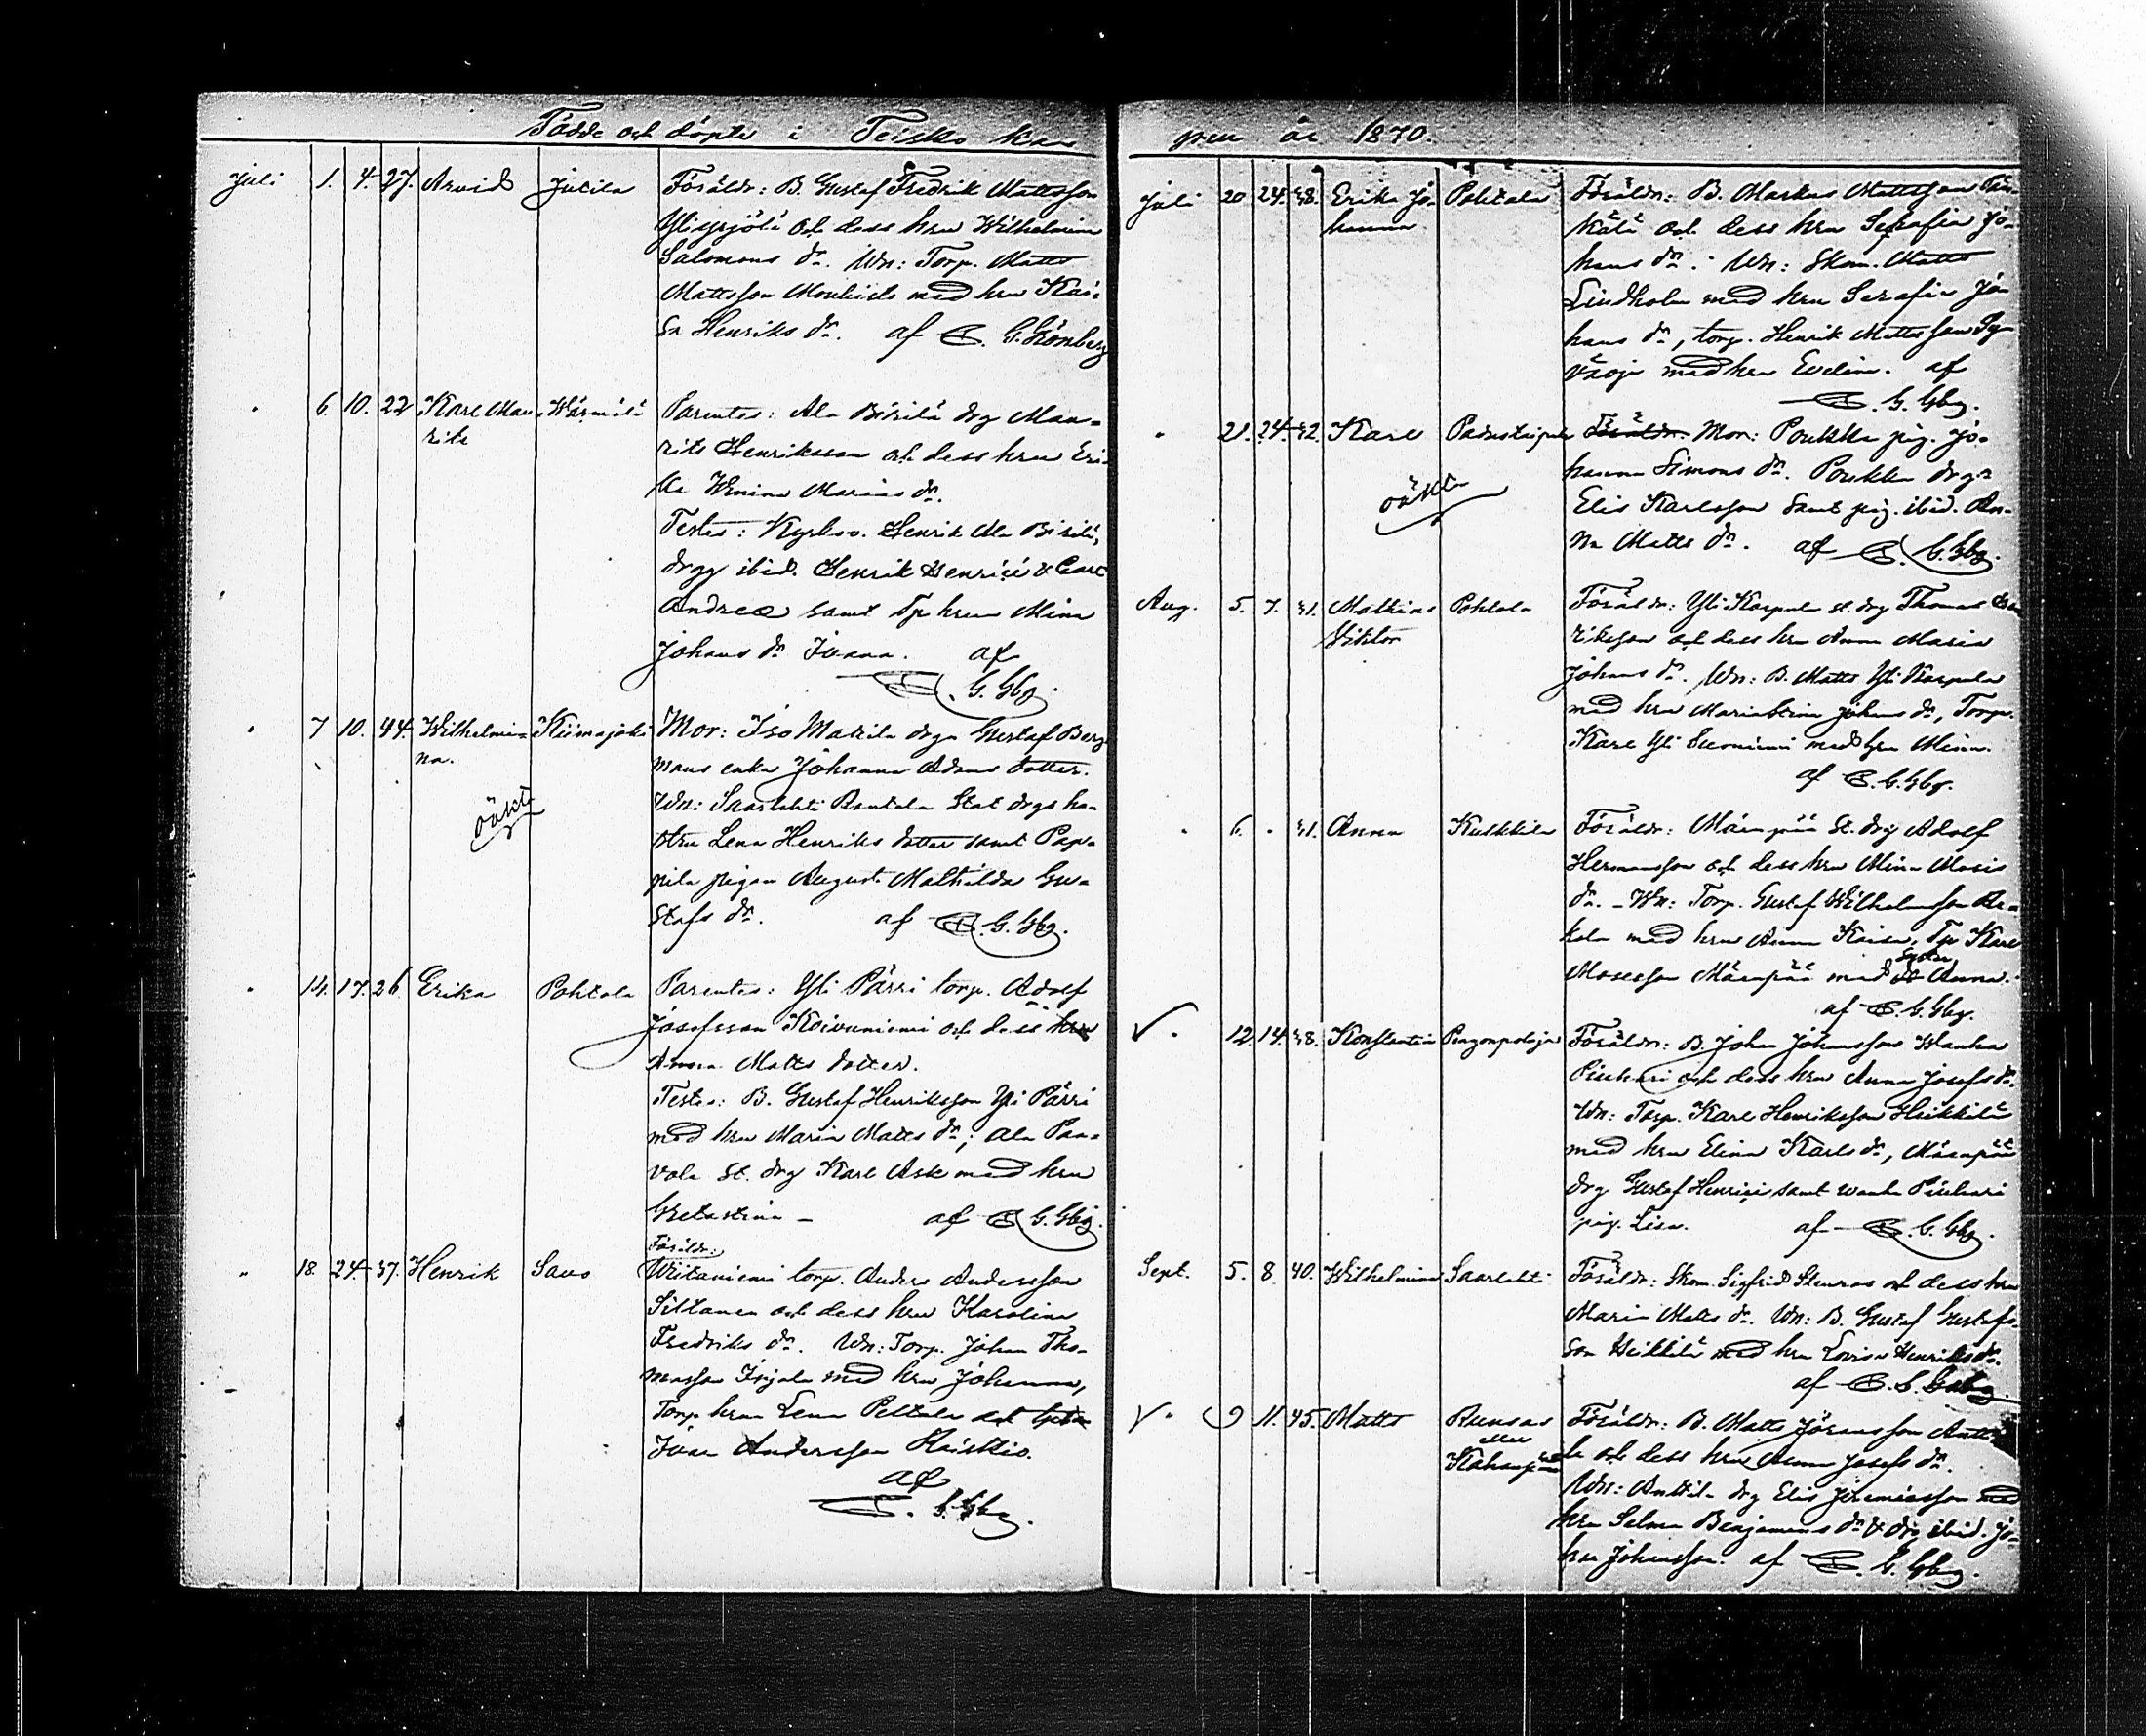 Födde och döpte i Teisko kap
pren år 1870.
Juli 1. 4. 27. Arvid Jutila Föräldr: B. Gustaf Fredrik Mattsson
Yliyrjölä och dess hru Wilhelmina
Salomons dr. Wn: Torp. Matts
Mattsson med hru Kai-
sa Henriks dr. af G. Grönberg
" 6. 10. 22 Karl Mau- Wärmälä Parentes: Ala Bisilä drg Mau-
ritz Henriksson och dess hru Eri-
ka Marias dr.
Testes: Kyrkov. Henrik Ala Bisilä,
drgr ibid. Henrik Henrici & Carl
Andreæ samt Tp hrun Mina
Johans dr Ivana. af
G. Gbg.
" 7 10. 44. Wilhelmi- Kiimajoki Mor: Iso Makila drgn Gustaf Berg-
na. mans enka Johanna Adams dotter.
oäkta Wn: Saarlahti Rantala Stat drgs
hru Lena Henriks dotter samt Pap-
pila pigan August. Mathilda Gu-
stafs dr. af G. Gbg.
" 14. 17. 26 Erika Pohtola Parentes: Yli Pärri torp. Adolf
Josefsson Koivuniemi och dess hru
Anna Matts dotter.
Testes: B. Gustaf Henriksson Yli Pärri
med hru Maria Matts dr; Ala Paa-
vola St. drg Karl Ask med hru
Gretastina – af G. Gbg.
Föräldr:
" 18. 24. 37. Henrik Savo Wiitaniemi torp. Anders Andersson
Siltanen och dess hru Karolina
Fredriks dr. Wn: Torp. Johan Tho-
masson Irjala med hru Johanna,
Torp hrun Lena Peltola och
Ivar Andersson Haiskio.
af
G. Gbg.
Juli 20 24. 38. Erika Jo- Pohtola Föräldr: B. Markus Mattsson
hanna och dess hru Serafia Jo-
hans dr. Wn: Skom. Matts
Lindholm med hru Serafia Jo-
hans dr, torp. Henrik Mattsson
med hru Evelina. af
G. Gbg.
" 21. 24. 32. Karl Padustaipale Föräldr. Mor: Poukka pig. Jo-
hanna Simons dr. Poukka drgn
oäkta Elis Karlsson samt pig. ibid. An-
na Matts dr. af G. Gbg.
Aug. 5. 7. 31. Mathias Pohtola Föräldr: Yli Karpula st. drg Thomas
Viktor riksson och dess hru Anna Maria
Johans dr. Wn: B. Matts Yli Karpula
med hru Mariastina Johans dr, Torp.
Karl Yli med hru Mina.
af G. Gbg.
" 6. " 31. Anna Kulkkila Föräldr: Mäenpää St. drg Adolf
Hermansson och dess hru Mina Mosis
dr. – Wn: Torp. Gustaf Wilhelmsson
kola med hru Anna Kaisa, Tp Karl
Mosesson Mäenpää med Syster Anna.
af G. Gbg.
" 12. 14. 38. Konstantin Pengonpohja Föräldr: B. Johan Johansson Wanha
Piuhari och dess hru Anna Josefs dr.
Wn: Torp. Karl Henriksson Heikkilä
med hru Elina Karls dr, Mäenpää
drg Gustaf Henrici samt Wanha Piuhari
pig. Lisa. af G. Gbg.
Sept. 5. 8 40. Wilhelmina Saarlahti Föräldr: Skom. Sigfrid Stenroos och dess hru
Maria Matts dr. Wn: B. Gustaf Gustafs-
son Heikkilä med hru Lovisa Henriks dr.
af G. Gbg.
" 9 11. 45. Matts Runsas Föräldr: B. Matts Göransson Antti-
eller la och dess hru Anna Josefs dr.
Wn: Anttila drg Elis Jeremiasson med
hru Selma Benjamins dr & drg ibid. Jo-
han Johansson. af G. Gbg.